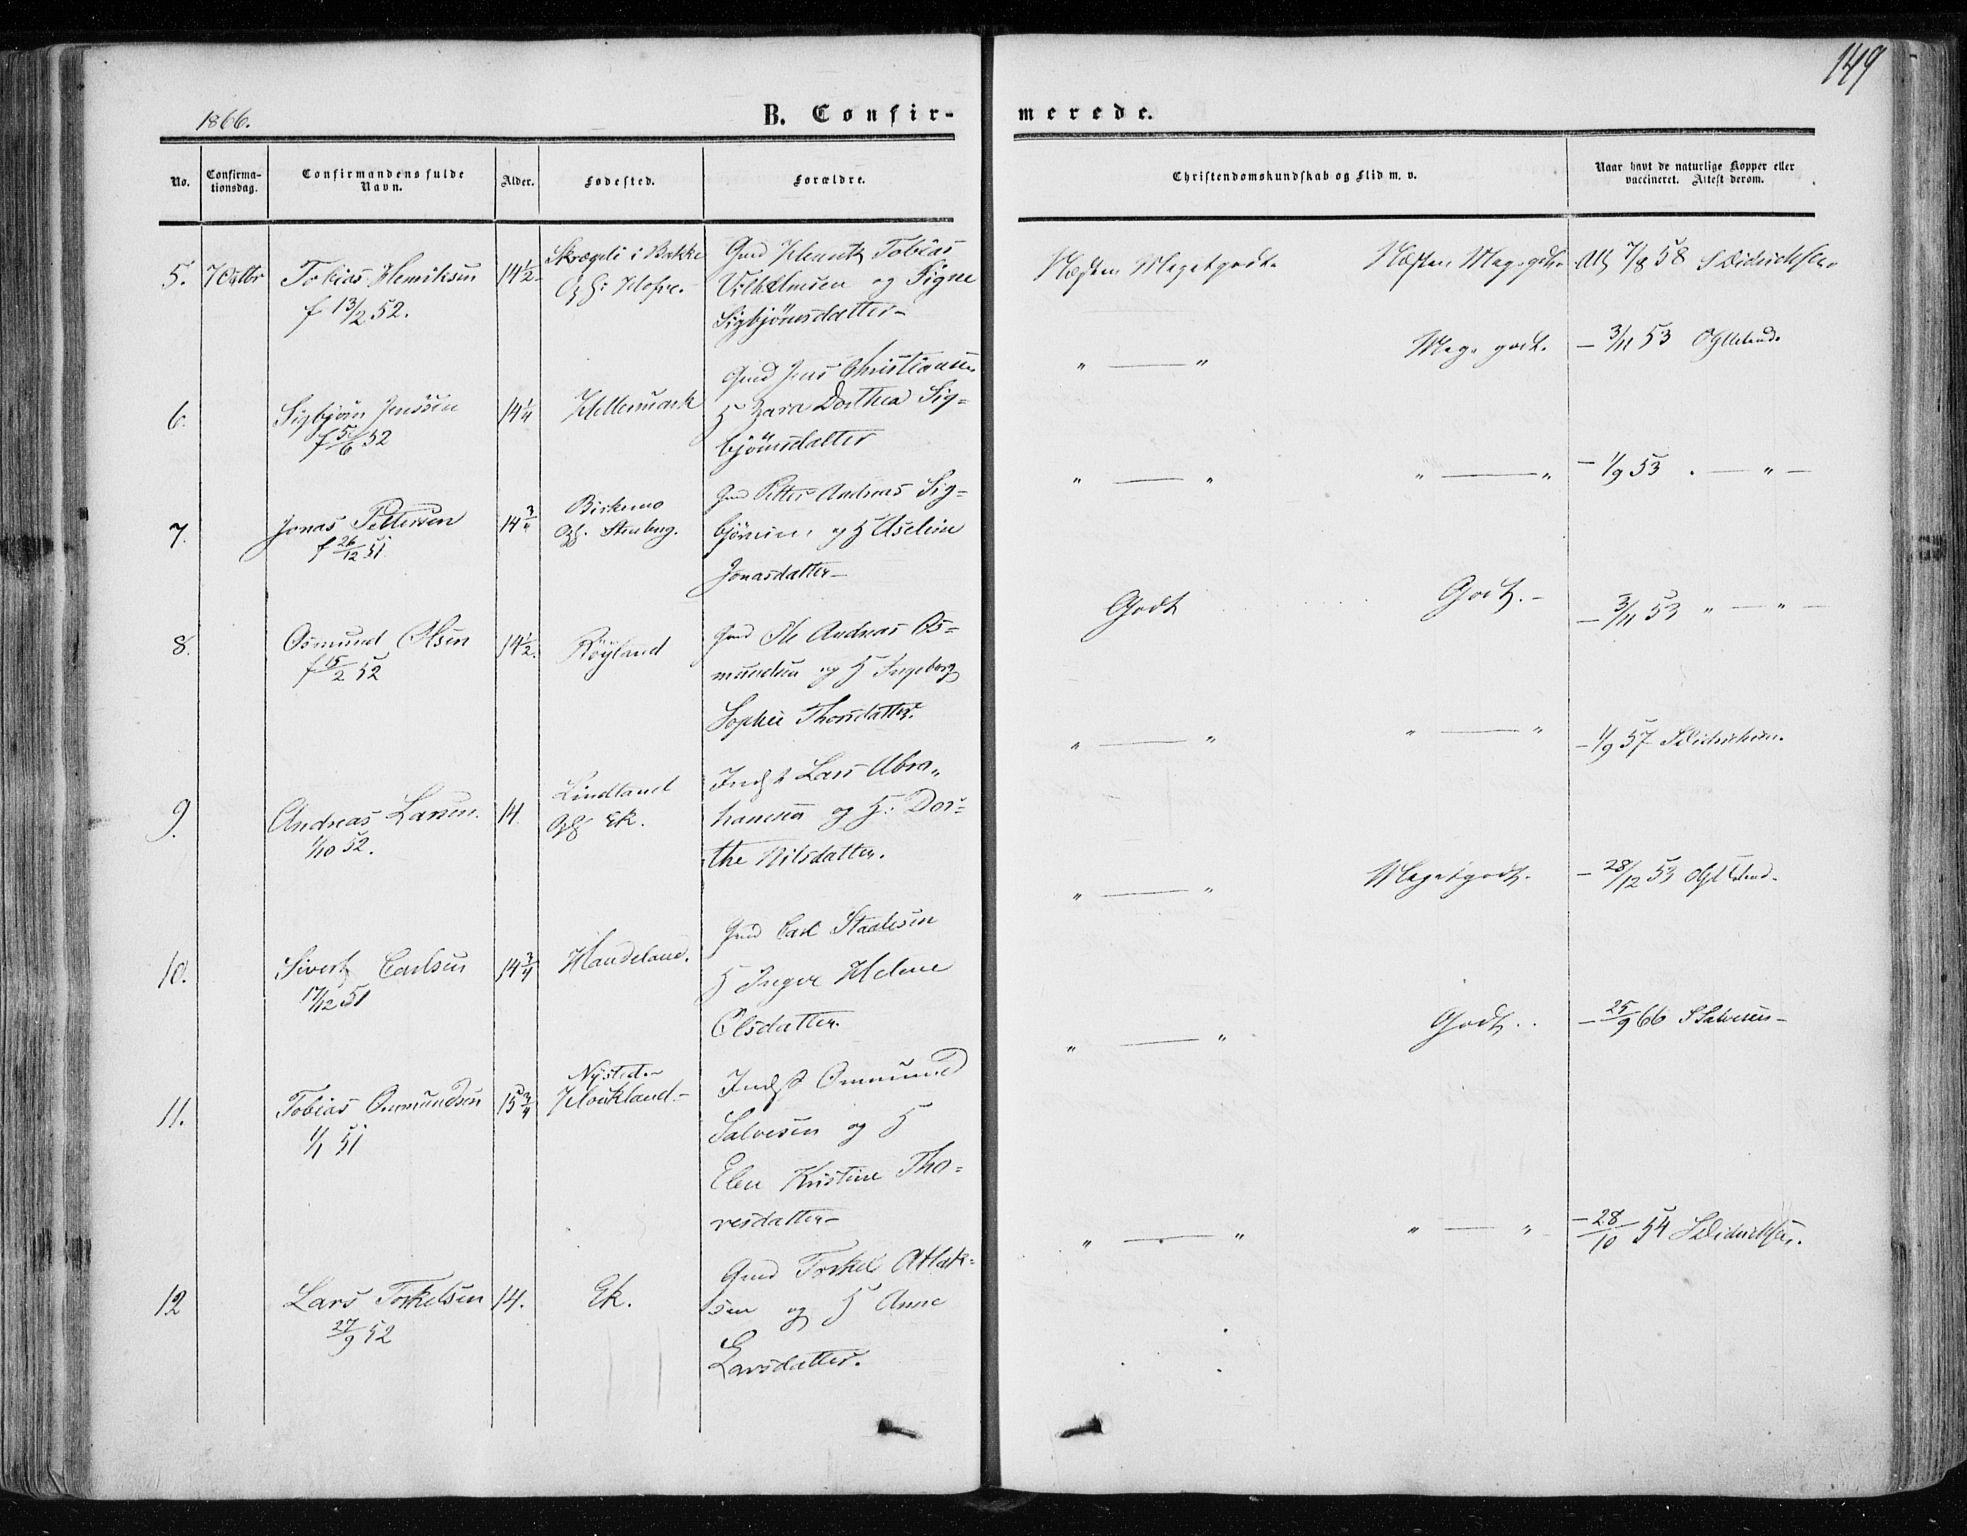 149
1866.
B. Confir-
merede.
No.
Confirma-
tionsdag.
Confirmandens fulde
Navn.
Alder.
Fødested.
Forældre.
Christendomskundskab og Flid m. v.
Naar havt de naturlige Kopper eller
vaccineret. Attest derom.
5.
7 Octbr
Tobias Henriksen
f 13/2 52.
14 1/2
Skrægeli i Bakke
Gmd Henrik Tobias
Vilhelmsen og Signe
Sigbjörnsdatter-
Næsten Megetgodt.
Næsten Meg. godt.
Att 7/8 58 S Didrichsen
6.
Sigbjörn Jenssen
f 5/6 52
14 1/4
Hellermark
Gmd Jens Christiansen
H Sara Dorthea Sig=
björnsdatter
" — "
Meg. godt.
- 3/11 53
7.
Jonas Pettersen
f 26/12 51
14 3/4
Birkemo
Stenberg.
Gmd Petter Andreas Sig=
björnsen, og H Aselein
Jonasdatter-
" — "
" — "
- 1/9 53 . — " —
8.
Osmund Olsen
f 15/2 52
14 1/2.
Röyland
Gmd Ole Andreas Os=
mundsen og H Ingeborg
Sophie Thorsdatter.
Godt
Godt.-
- 3/11 53 " — " —
9.
Andreas Larsen.
1/10 52.
14
Lindland
Ek.
Indst Lars Abra„
hamsen og H. Dor=
the Nilsdatter.
" — "
" — "
- 1/9 57 S Didrichsen.
10.
Sivert Carlsen
17/12 51
14 3/4
Haudeland.
Gmd Carl Staalesen
H Inger Helene
Olsdatter.
" — "
Megetgodt.
- 28/12 53
11.
Tobias Ommundsen
1/1 51
15 3/4
Nysted-
Houkland-
Indst Ommund
Salvesen og H
Elen Kristine Tho=
resdatter-
" — "
Godt.
- 25/9 66 S Salvesen-
12
Lars Torkelsen
27/9 52
14.
Ek.
Gmd Torkel Atlak=
sen og H Anne
Larsdatter.
" — "
" — "
- 28/10 54 S Didrichsen.